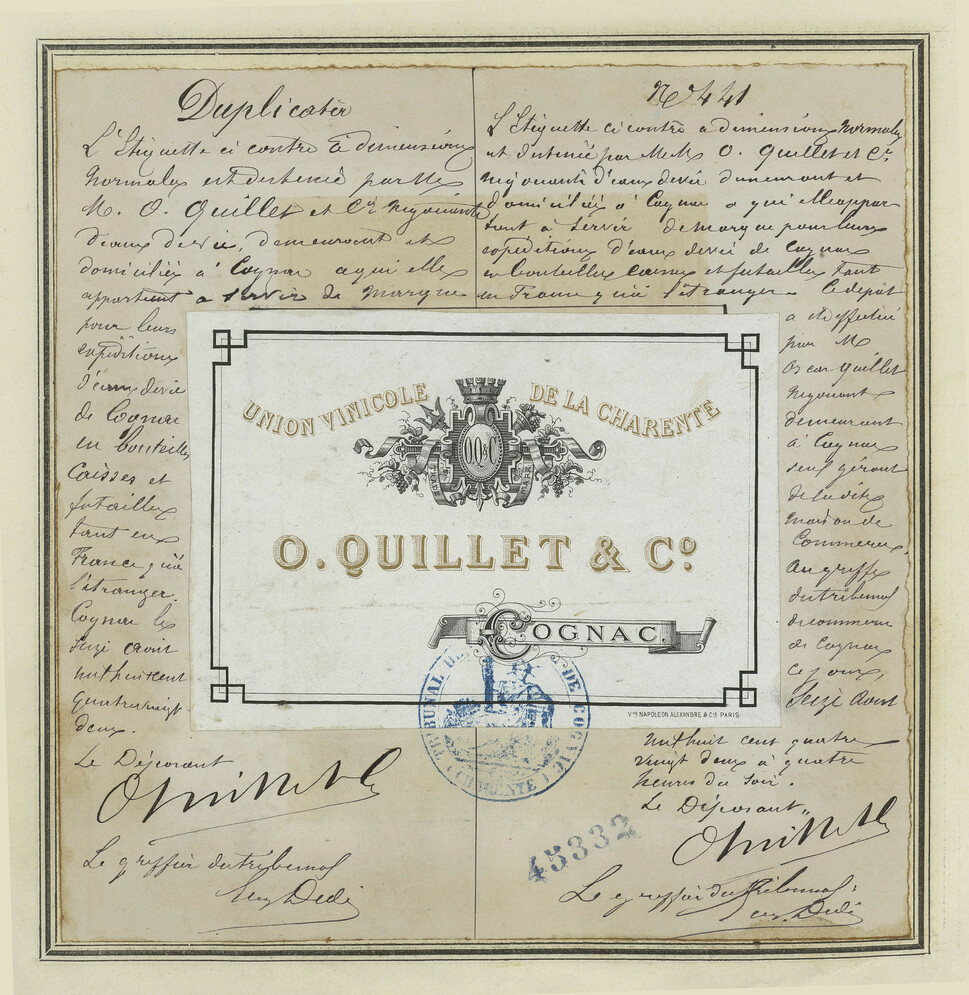 Duplicata
L'Etiquette ci contre à dimensions
Normales est destinée par MM
M. O. Quillet et Cie Négociants
d'eaux de vie, demeurant et
domiciliés à Cognac à qui elle
appartient à servir de marque
pour leurs
expéditions
d'eaux de vie
de Cognac
en bouteilles
Caisses et
futailles
tant en
France qu'à
l'étranger.
Cognac le
Seize août
mil huit cent
quatre vingt
deux.
Le Déposant
O Quillet & C
Le greffier du tribunal
No 441
L'Etiquette ci contre à dimensions Normales
est destinée par MM. O. Quillet et Cie
négociants d'eaux de vie demeurant et
domiciliés à Cognac à qui elle appar
tient à servir de marque pour leurs
expéditions d'eaux de vie de Cognac
en bouteilles caisses et futailles tant
en France qu'à l'étranger. Ce dépôt
a été effectué
par M
Oscar Quillet
Négociant
demeurant
à Cognac
seul gérant
de la dite
maison de
Commerce,
Au greffe
du tribunal
de commerce
de Cognac
ce jour,
Seize Aout
mil huit cent quatre
vingt deux à quatre
heures du soir.
Le Déposant
O Quillet & C
Le greffier du Tribunal
UNION VINICOLE DE LA CHARENTE
O.Q&C
MARK
O. QUILLET & Co.
COGNAC.
Vve NAPOLEON ALEXANDRE & Cie PARIS
TRIBUNAL DE DE COGNAC
(CHARENTE)
45332